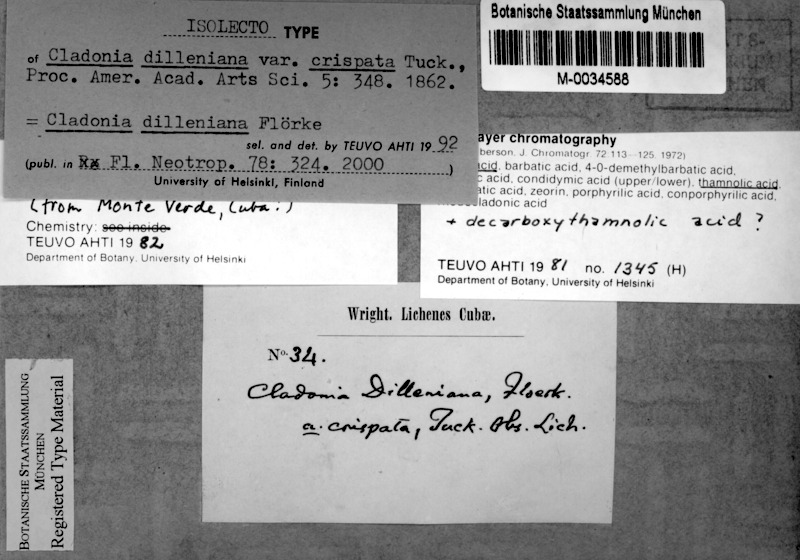 ISOLECTO TYPE
of Cladonia dilleniana var. crispata Tuck.,
Proc. Amer. Acad. Arts Sci. 5: 348. 1862.
= Cladonia dilleniana Flörke
sel. and det. by TEUVO AHTI 19 92
(publ. in Fl. Neotrop. 78: 324. 2000 )
University of Helsinki, Finland
Botanische Staatssammlung München
M-0034588
(from Monte Verde, Cuba.)
Chemistry: see inside
TEUVO AHTI 19 82
Department of Botany, University of Helsinki
ayer chromatography
berson. J. Chromatogr. 72:113–125. 1972)
acid, barbatic acid, 4-0-demethylbarbatic acid,
c acid, condidymic acid (upper/lower), thamnolic acid,
atic acid, zeorin, porphyrilic acid, conporphyrilic acid,
ladonic acid
+ decarboxythamnolic acid ?
TEUVO AHTI 19 81 no. 1345 (H)
Department of Botany, University of Helsinki
Wright. Lichenes Cubæ.
No. 34.
Cladonia Dilleniana, Floerk.
a. crispata, Tuck. Obs. Lich.
BOTANISCHE STAATSSAMMLUNG
MÜNCHEN
Registered Type Material